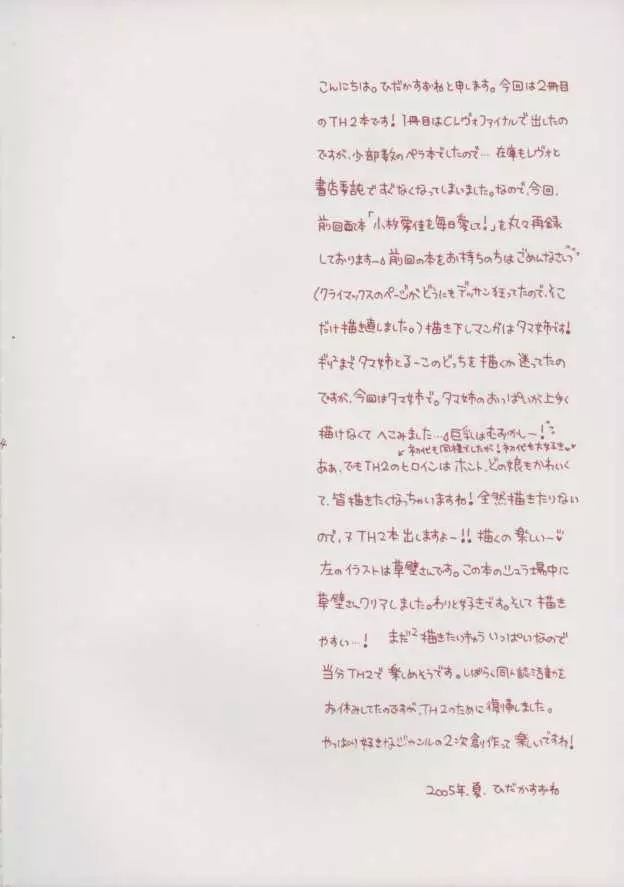 こんにちは。ひだかすずねと申します。今回は2冊目
のTH2本です! 1冊目はCLヴォファイナルで出したの
ですが、少部数のペラ本でしたので… 在庫もレヴォと
書店委託ですぐなくなってしまいました。なので、今回、
前回配本「小牧愛佳を毎日愛して!」を丸々再録
しております〜。前回の本をお持ちの方はごめんなさいっ
(クライマックスのページがどうにもデッサン狂ってたので、そこ
だけ描き直しました。)描き下しマンガはタマ姉です!
ギリ²までタマ姉とるーこのどっちを描くか迷ってたの
ですが、今回はタマ姉で。タマ姉のおっぱいが上手く
描けなくてへこみました…。巨乳はむずかしー!
初代も同様でしたが!初代も大好き♥
ああ、でもTH2のヒロインはホント、どの娘もかわいく
て、皆描きたくなっちゃいますね! 全然描きたりない
ので、ヌTH2本出しますよ〜!! 描くの楽しい〜♥
左のイラストは草壁さんです。この本のシュラ場中に
草壁さんクリアしました。わりと好きです。そして描き
やすい…! まだ²描きたいキャラいっぱいなので
当分TH2で楽しめそうです。しばらく同人誌活動を
お休みしてたのですが、TH2のために復帰しました。
やっぱり好きなジャンルの2次創作って楽しいですね!
2005年、夏、ひだかすずね